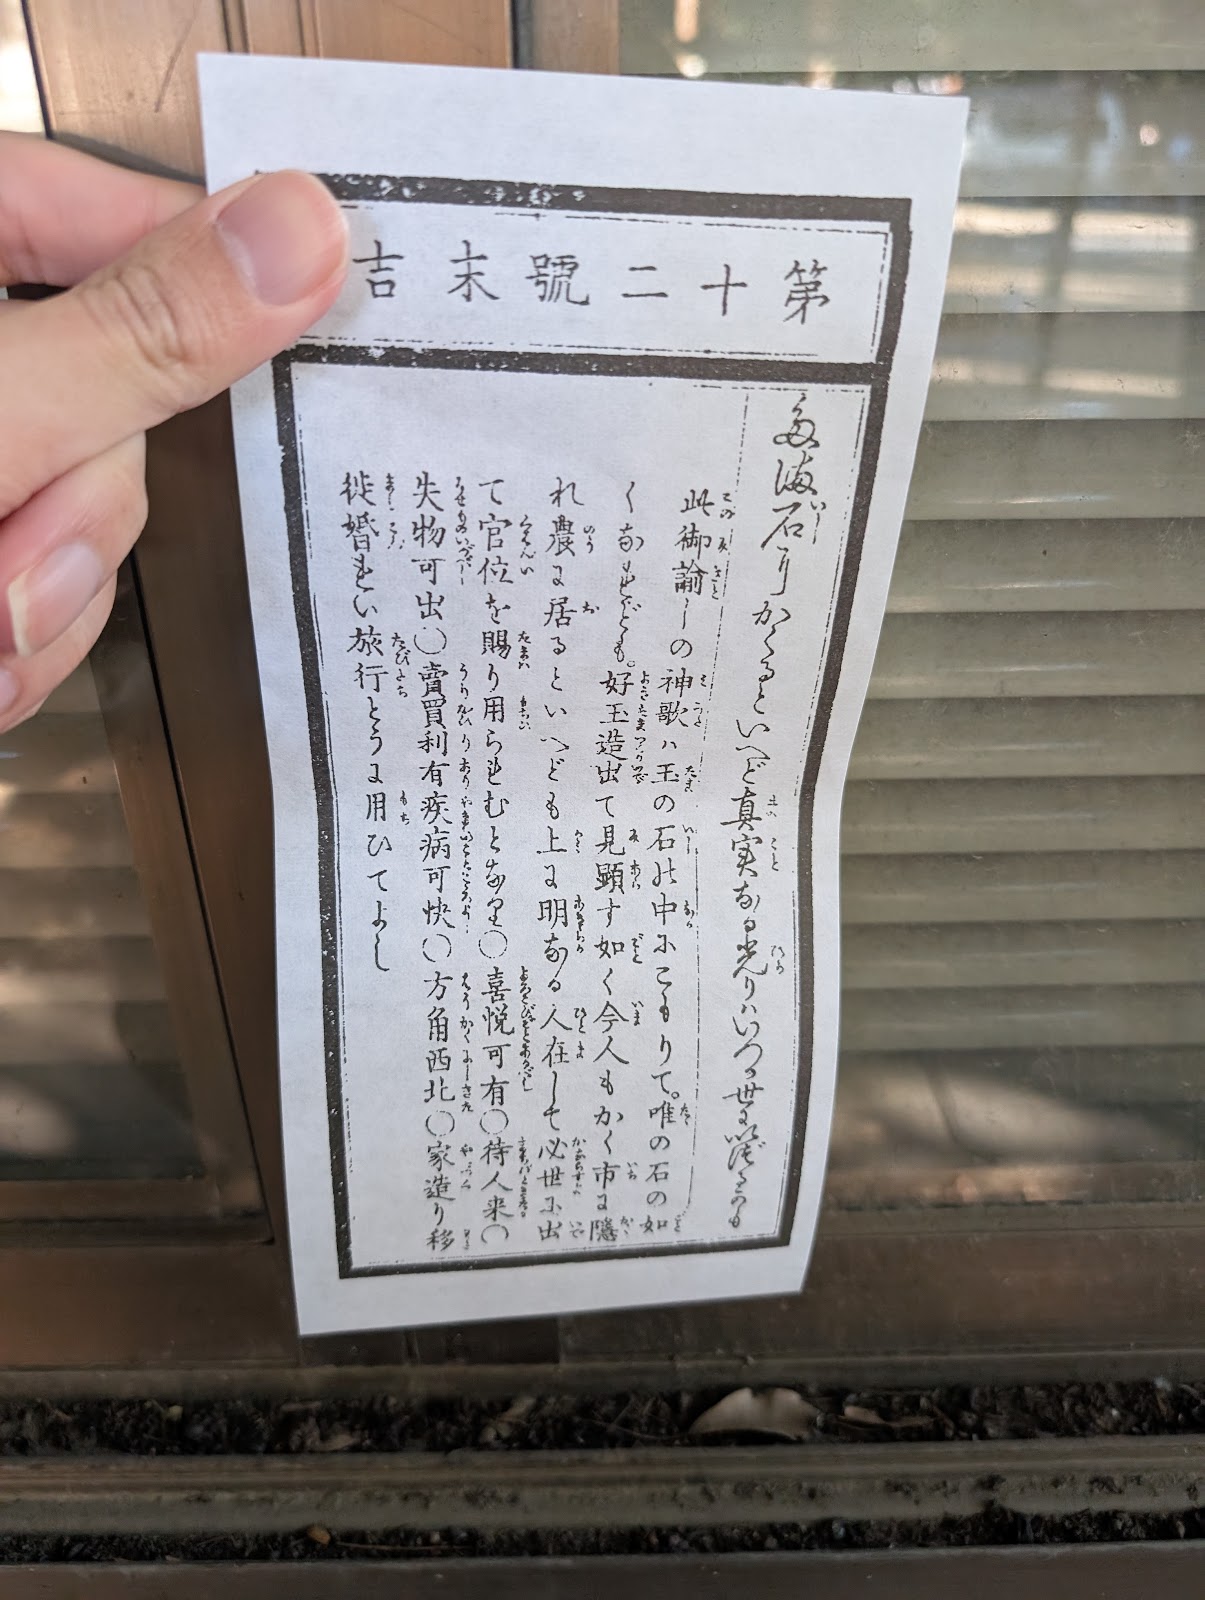 第十二號末吉
石にかくるといへど真実なる光りハいつか世に
此御諭しの神歌ハ玉の石の中にこもりて。唯の石の如
くなれども。好玉造出て見顕す如く今人もかく市に隠
れ農に居るといへども上に明なる人在して必世に出
て官位を賜り用られむとなり〇喜悦可有〇待人来〇
失物可出〇賣買利有疾病可快〇方角西北〇家造り移
徙婚礼旅行とうに用ひてよし